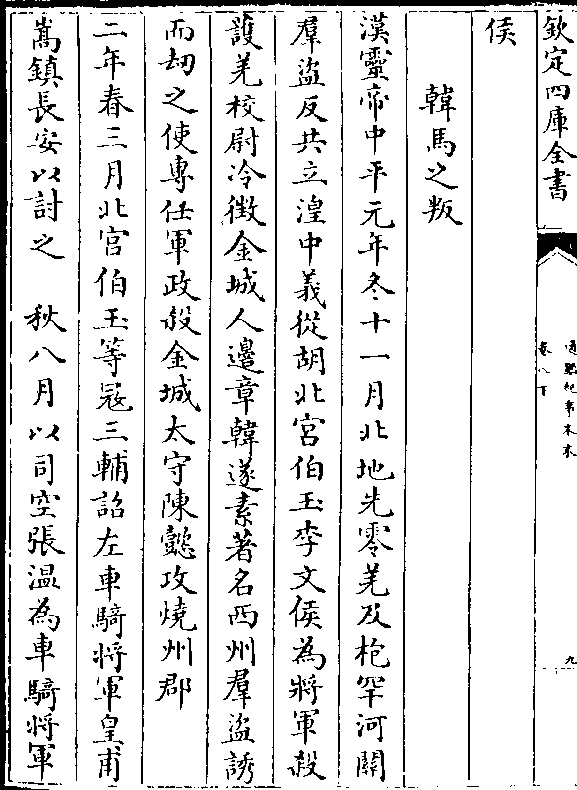 欽定四庫全書
通鑑紀事本末
卷八下
九
侯
韓馬之叛
漢靈帝中平元年冬十一月北地先零羌及枹罕河關
羣盜反共立湟中義從胡北宮伯玉李文侯為將軍殺
護羌校尉泠徴金城人邊章韓遂素著名西州羣盜誘
而刧之使專任軍政殺金城太守陳懿攻燒州郡
二年春三月北宮伯玉等寇三輔詔左車騎將軍皇甫
嵩鎮長安以討之　秋八月以司空張温為車騎將軍